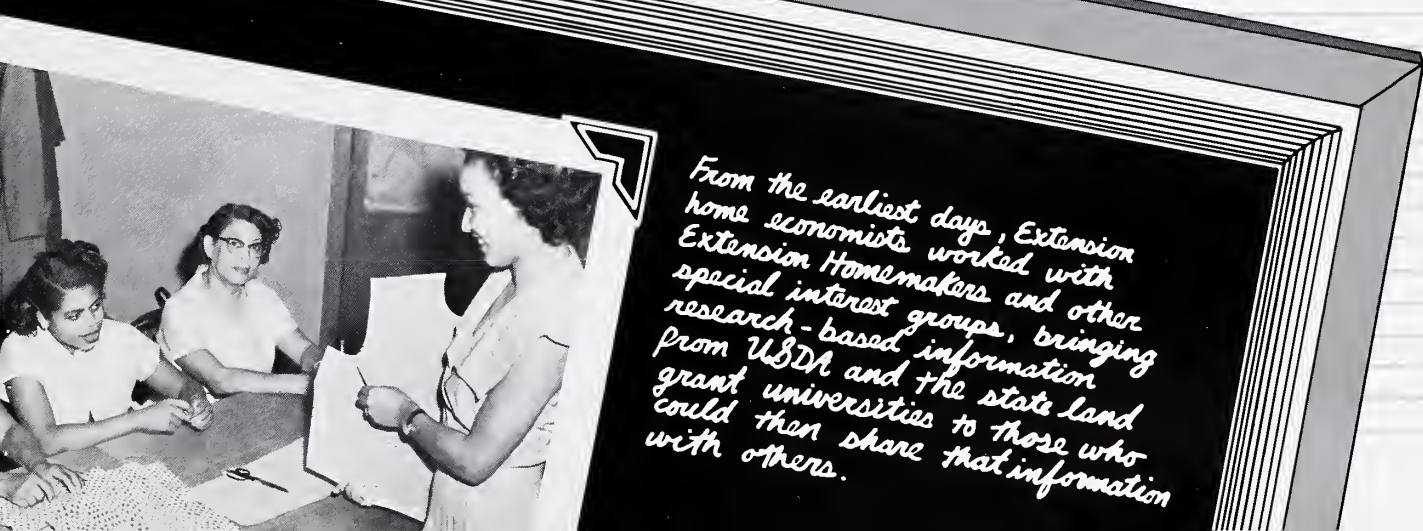 From the earliest days, Extension
home economists worked with
Extension Homemakers and other
special interest groups, bringing
research-based information
from USDA and the state land
grant universities to those who
could then share that information
with others.